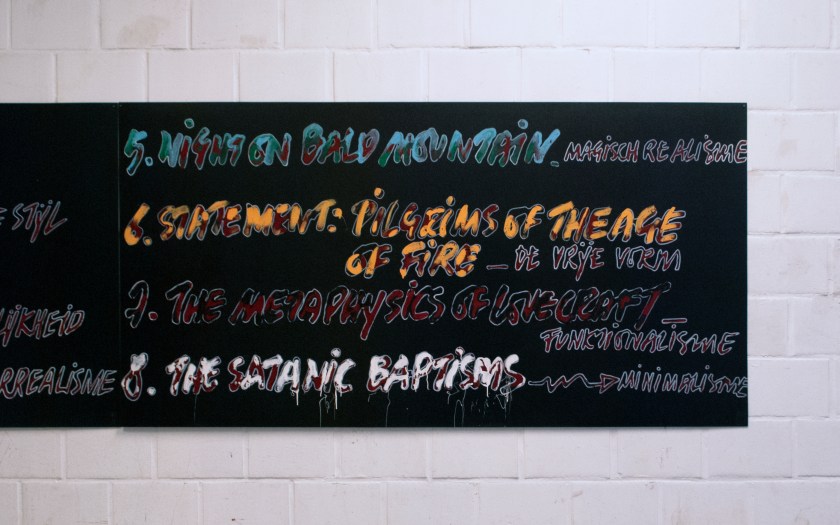 5. NIGHT ON BALD MOUNTAIN_ MAGISCH REALISME
6. STATEMENT: PILGRIMS OF THE AGE
OF FIRE _ DE VRIJE VORM
E STIJL
7. THE METAPHYSICS OF LOVECRAFT_
FUNKTIONALISME
IJKHEID
8. THE SATANIC BAPTISMS MINIMALISME
RREALISME